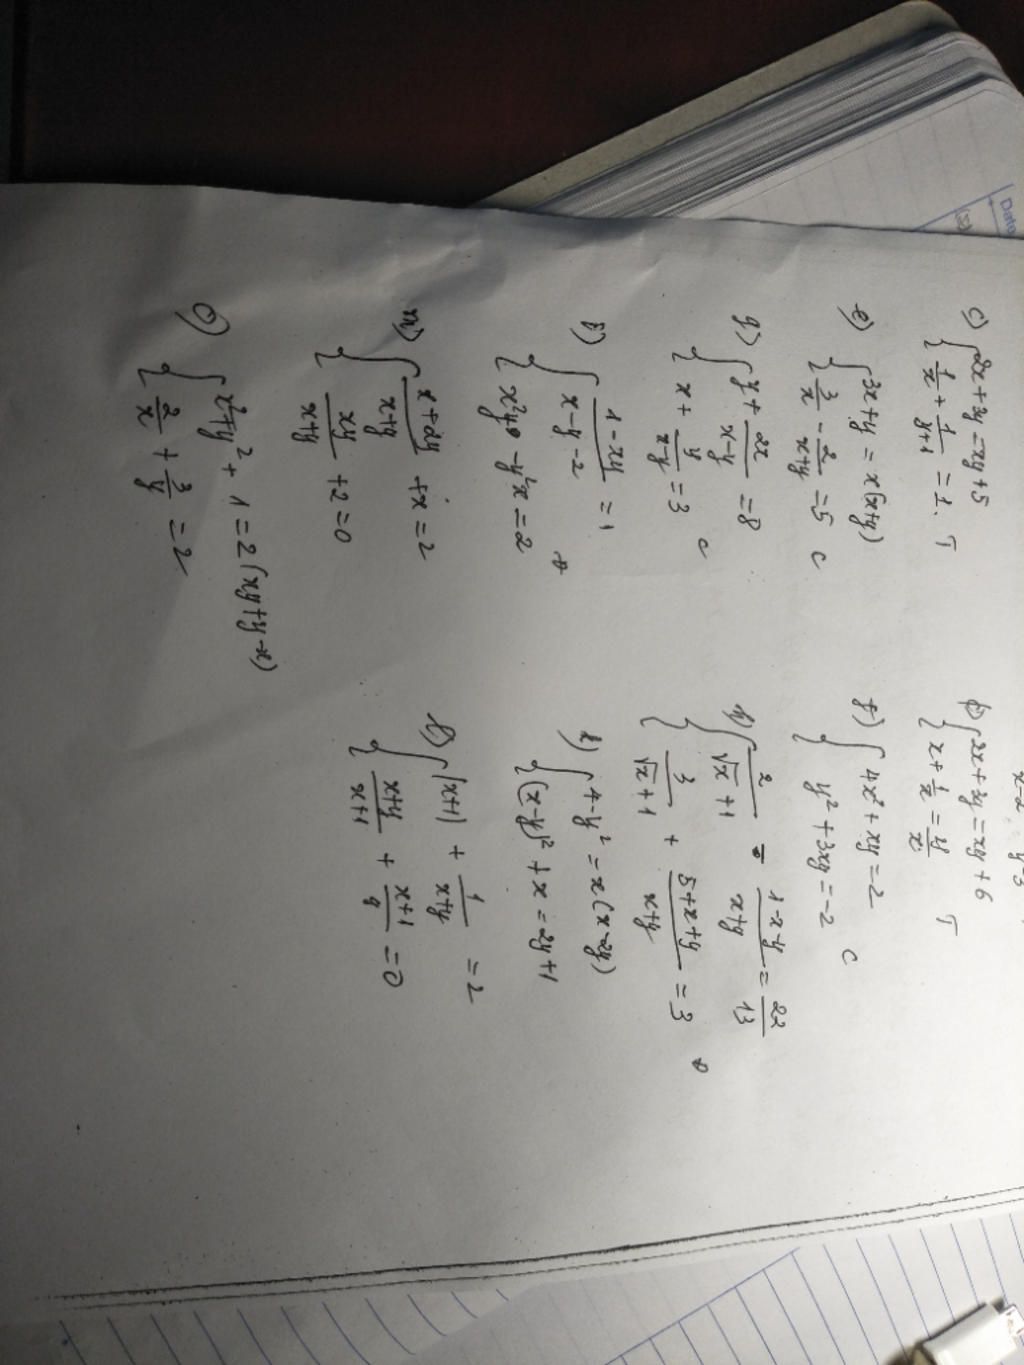 c) { 2x + 3y = xy + 5
1/x + 1/(y+1) = 1. T
d) { 2x + 3y = xy + 6
x + 1/x = y/x T
e) { 3x + y = x(x+y)
3/x - 2/(x+y) = 5 C
f) { 4x² + xy = 2
y² + 3xy = -2 C
g) { y + 2x/(x-y) = 8
x + y/(x-y) = 3 C
h) { 2/(√x + 1) - (1-x-y)/(x+y) = 22/13
3/(√x + 1) + (5+x+y)/(x+y) = 3
i) { (1-xy)/(x-y-2) = 1
x²y - y²x = 2
k) { 4 - y² = x(x-2y)
(x-y)² + x = 2y + 1
m) { (x+2y)/(x+y) + x = 2
xy/(x+y) + 2 = 0
l) { (x+1) + 1/(x+y) = 2
(x+y)/(x+1) + (x+1)/y = 0
o) { x² + y² + 1 = 2(xy + y - x)
2/x + 3/y = 2
Date